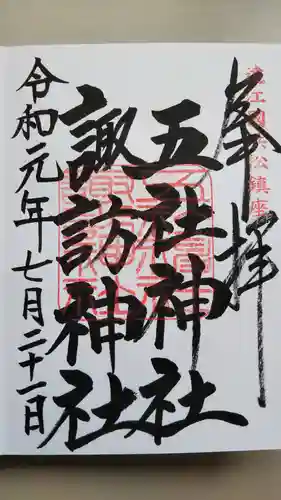 奉拝
五社神社
諏訪神社
令和元年七月二十一日